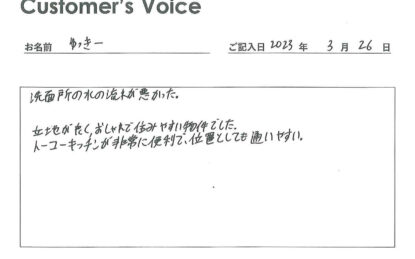 Customer's Voice
お名前 ゆっきー ご記入日 2023 年 3 月 26 日
洗面所の水の流れが悪かった。
立地が良く、おしゃれで住みやすい物件でした。
トーコーキッチンが非常に便利で、位置としても通いやすい。